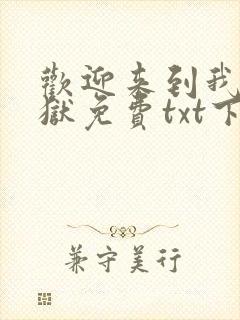 歡迎来到我
獄免費txt下
兼守美行